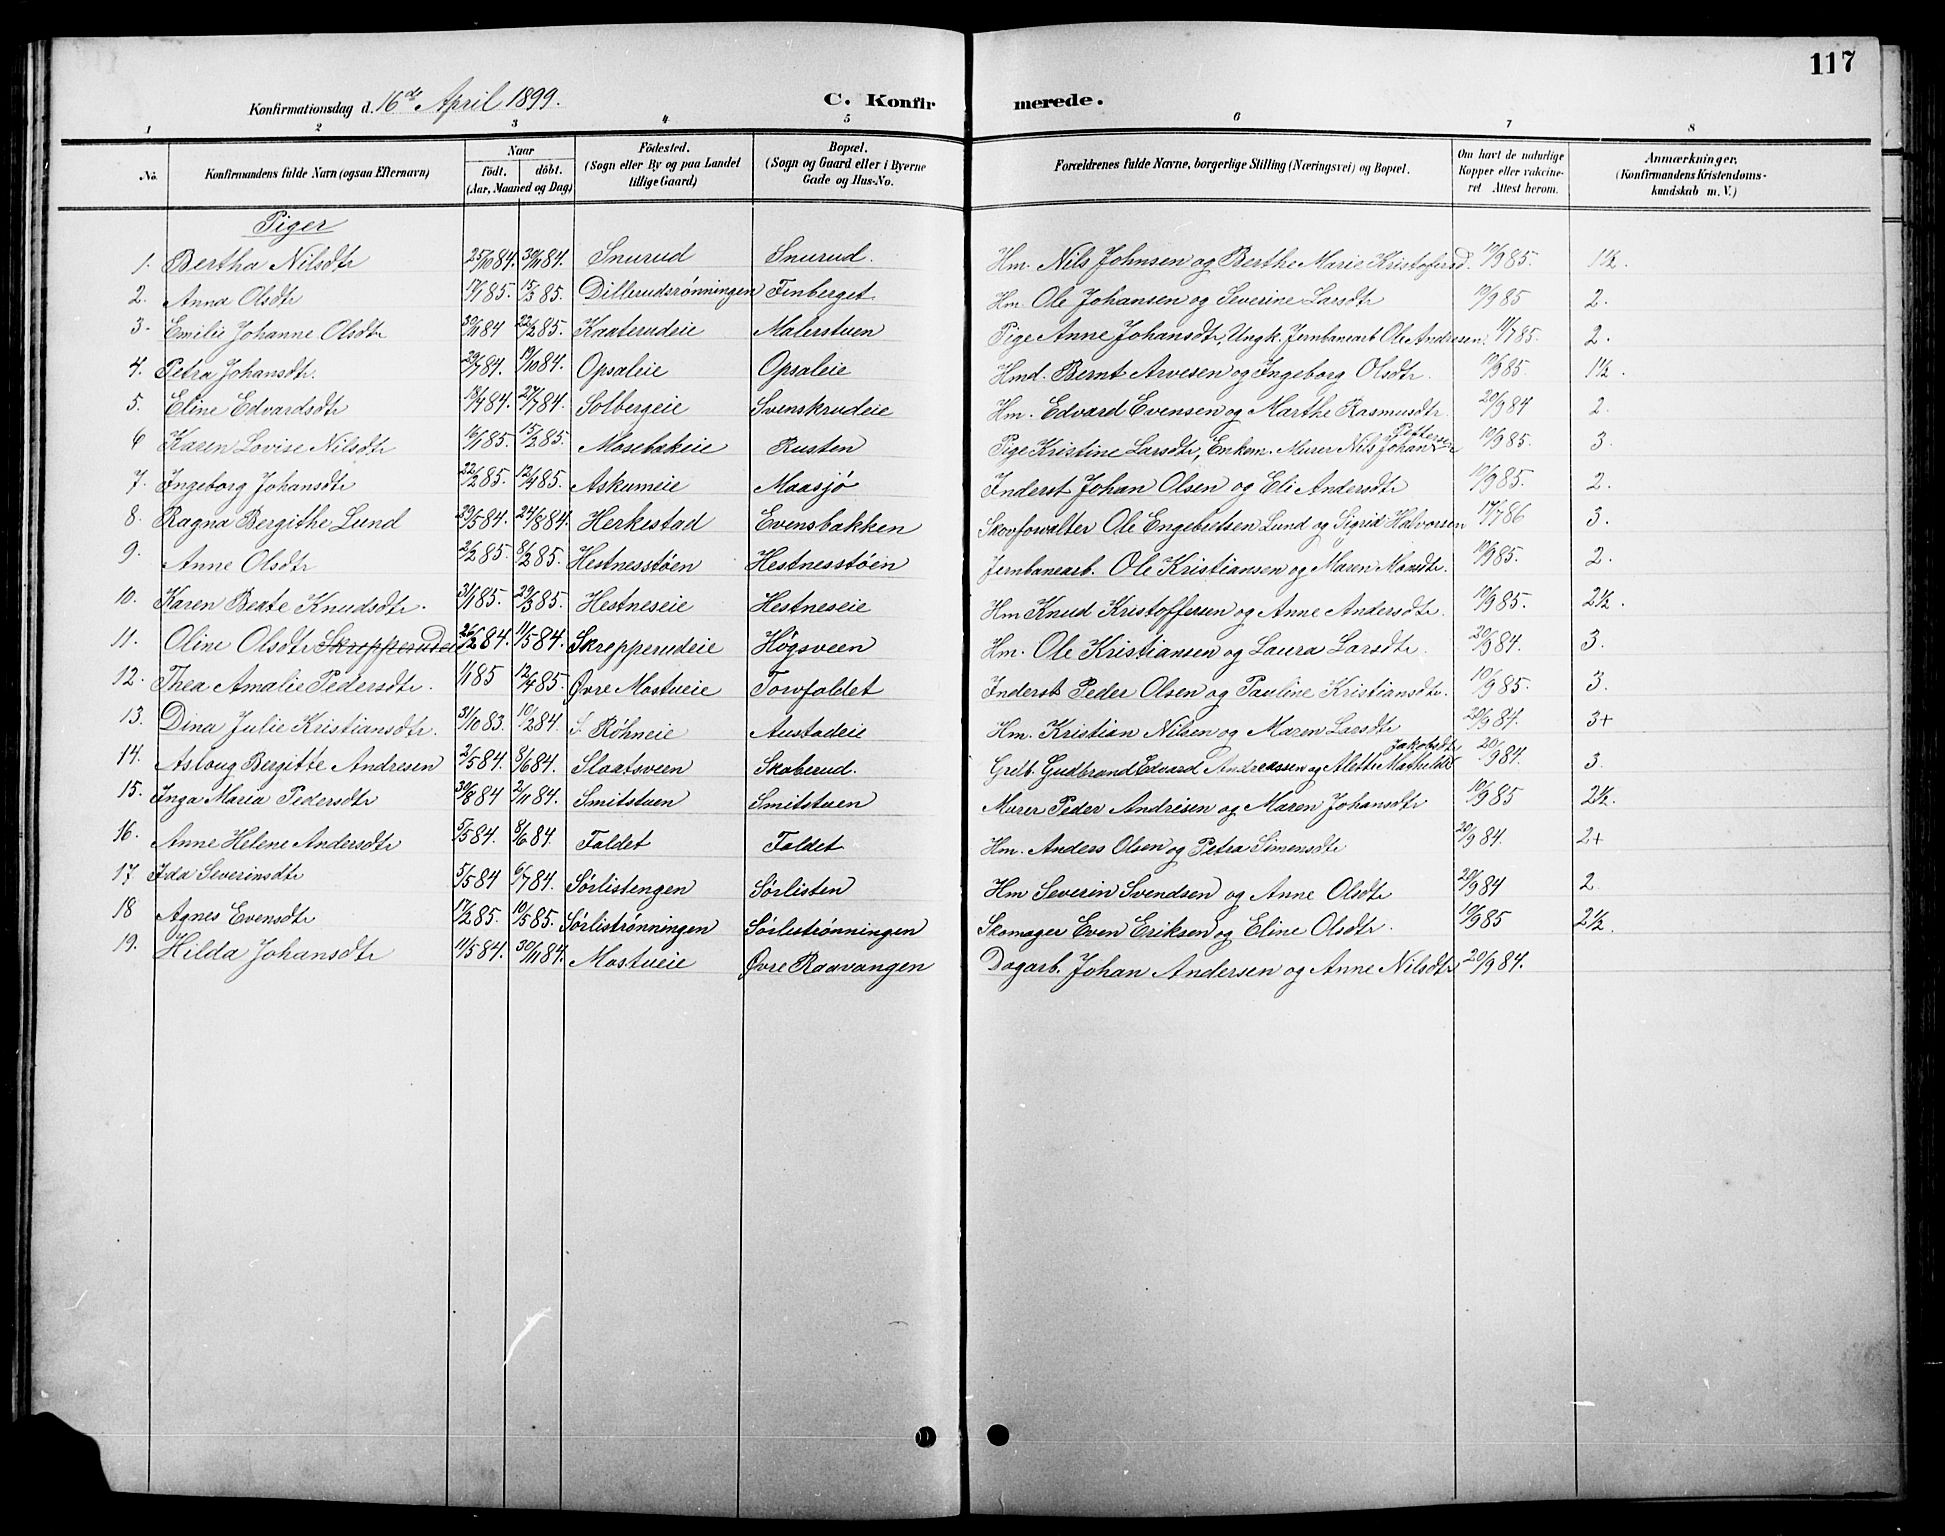 117
Konfirmationsdag d. 16de April 1899. C. Konfirmerede.
1 2 3 4 5 6 7 8
No. Konfirmandens fulde Navn (ogsaa Efternavn) Naar födt. döbt. (Aar, Maaned og Dag) Födested. (Sogn eller By og paa Landet tillige Gaard) Bopæl. (Sogn og Gaard eller i Byerne Gade og Hus-No. Forældrenes fulde Navne, borgerlige Stilling (Næringsvei) og Bopæl. Om havt de naturlige Kopper eller vakcineret Attest herom. Anmærkninger, (Konfirmandens Kristendomskundskab m. V.)
Piger
1. Bertha Nilsdtr 25/10 84. 30/11 84. Snurud Snurud. Hm. Nils Johnsen og Berthe Marie Kristofersd. 10/9 85. 1½.
2. Anna Olsdtr 17/1 85. 15/3 85. Dillerudsrønningen Finberget Hm. Ole Johansen og Severine Larsdtr 10/9 85 2.
3. Emilie Johanne Olsdtr 30/11 84 22/2 85. Kaaterudeie Malerstuen Pige Anne Johansdtr, Ungk. Jernbanearb Ole Andresen. 11/7 85. 2.
4. Petra Johansdtr. 29/7 84. 19/10 84. Opsaleie Opsaleie Hmd. Bernt Arvesen og Ingeborg Olsdtr. 10/9 85. 1½.
5. Eline Edvardsdtr 84. 27/7 84. Solbergeie Svenskrudeie Hm. Edvard Evensen og Marthe Rasmusdtr. 20/9 84 2.
6 Karen Lovise Nilsdtr 16/1 85. 15/2 85. Mosebakeie Rusten Pige Kristine Larsdtr, Enkem. Murer Nils Johan Pettersen 10/9 85. 3
7. Ingeborg Johansdtr 22/2 85. 12/4 85. Askumeie Maasjø Inderst Johan Olsen og Eli Andersdtr 10/9 85. 2.
8. Ragna Bergithe Lund 29/5 84. 24/8 84. Herkestad Evensbakken Skovforvalter Ole Engebretsen Lund og Sigrid Halvorsen 17/7 86 3.
9. Anne Olsdtr 2/2 85. 8/2 85. Hestnesstøen Hestnesstøen Jernbanearb. Ole Kristiansen og Maren Monsdtr. 10/9 85. 2.
10. Karen Beate Knudsdtr. 31/1 85. 29/3 85. Hestneseie Hestneseie Hm Knud Kristoffersen og Anne Andersdtr. 10/9 85. 2½.
11. Oline Olsdtr Skrepperudeie 26/2 84. 11/5 84. Skrepperudeie Høgsveen Hm. Ole Kristiansen og Laura Larsdtr. 20/9 84. 3.
12. Thea Amalie Pedersdtr. 1/1 85 12/4 85. Øvre Mostueie Torvfaldet Inderst Peder Olsen og Pauline Kristiansdtr. 10/9 85. 3.
13. Dina Julie Kristiansdtr. 31/10 83. 10/2 84. S. Röhneie Austadeie Hm. Kristian Nilsen og Maren Larsdtr 20/9 84. 3+
14. Aslaug Bergitte Andresen 2/5 84. 8/6 84. Slaatsveen Skaberud. Grdb. Gudbrand Edvard Andreassen og Alette Mathilde Jakobsdtr 20/9 84. 3.
15. Inga Maria Pedersdtr 30/8 84 2/11 84. Smitstuen Smitstuen Murer Peder Andresen og Maren Johansdtr 10/9 85 2½.
16. Anne Helene Andersdtr 5/5 84. 8/6 84. Faldet Faldet Hm. Anders Olsen og Petra Simensdtr 20/9 84. 2+
17 Ida Severinsdtr 5/5 84 6/7 84. Sørlistengen Sørlisten Hm Severin Svendsen og Anne Olsdtr 20/9 84 2
18 Agnes Evensdtr 17/2 85. 10/5 85. Sørlistrønningen Sørlistrønningen Skomager Even Eriksen og Eline Olsdtr. 10/9 85 2½.
19. Hilda Johansdtr 11/5 84. 30/11 84. Mostueie Øvre Raavangen Dagarb. Johan Andersen og Anne Nilsdtr 20/9 84.